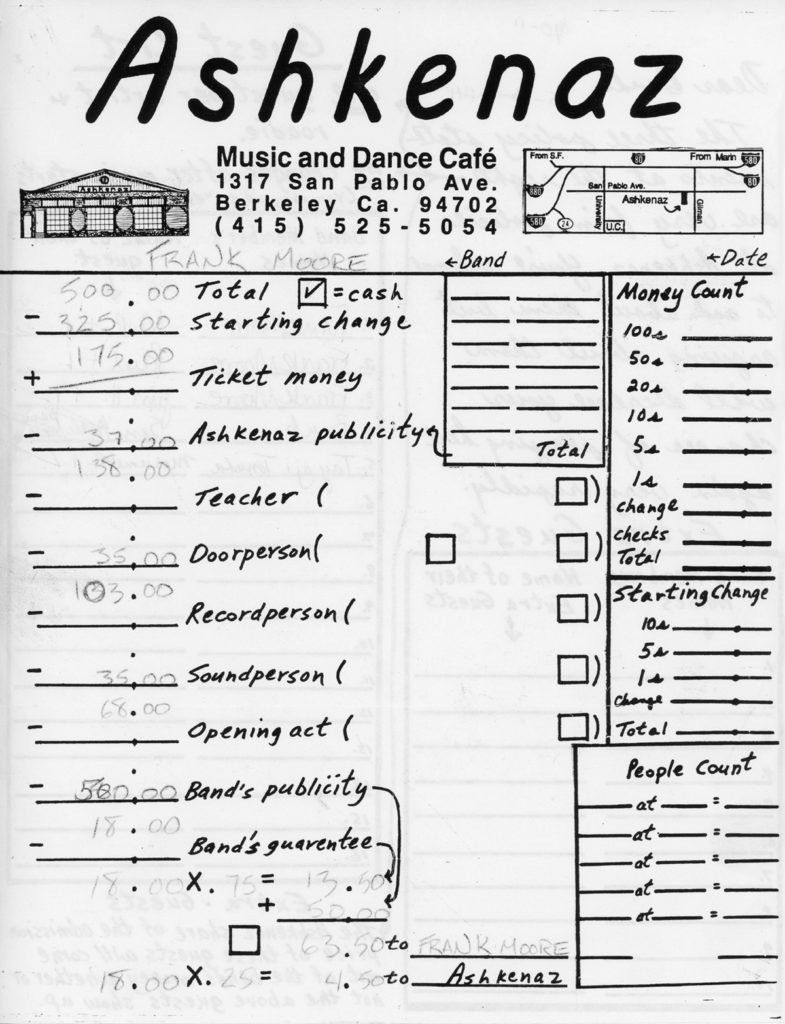 Ashkenaz
Music and Dance Café
1317 San Pablo Ave.
Berkeley Ca. 94702
(415) 525-5054
Ashkenaz
From S.F.
80
From Marin
580
580
San Pablo Ave.
Ashkenaz
University
Gilman
24
U.C.
80
FRANK MOORE ←Band ←Date
500.00 Total ☑ = cash
- 325.00 Starting change
175.00
+ Ticket money
- 37.00 Ashkenaz publicity
138.00
- . Teacher ( )
- 35.00 Doorperson ( )
103.00
- . Recordperson ( )
- 35.00 Soundperson ( )
68.00
- . Opening act ( )
- 50.00 Band's publicity
18.00
- Band's guarentee
18.00 X .75 = 13.50
+ 50.00
63.50 to FRANK MOORE
18.00 X .25 = 4.50 to Ashkenaz
Total
Money Count
100s
50s
20s
10s
5s
1s
change
checks
Total
Starting Change
10s
5s
1s
change
Total
People Count
at =
at =
at =
at =
at =